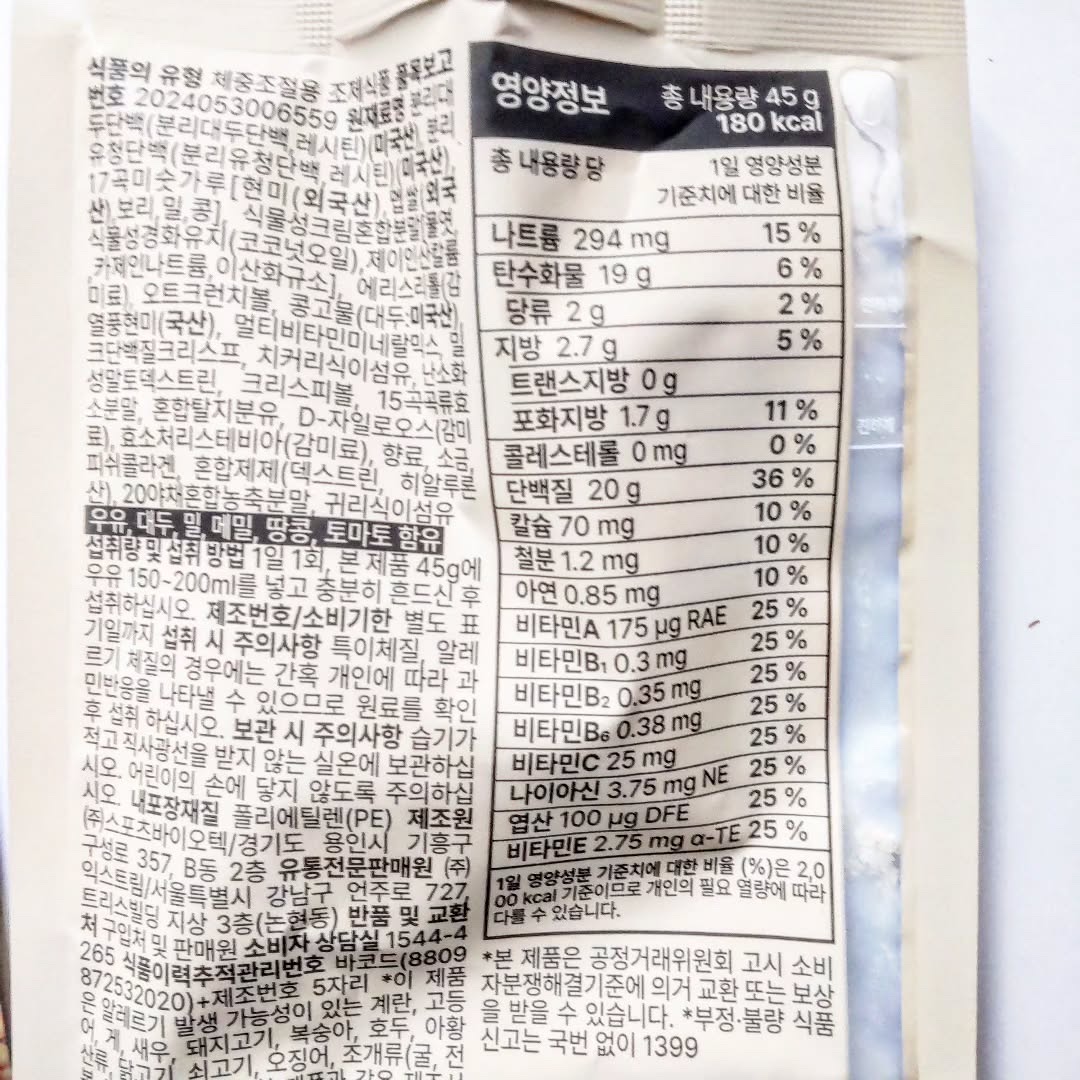 식품의 유형 체중조절용 조제식품 품목보고
번호 2024053006559 원재료명 분리대
두단백(분리대두단백, 레시틴)(미국산), 분리
유청단백(분리유청단백, 레시틴)(미국산),
17곡미숫가루[현미(외국산), 멥쌀(외국
산), 보리, 밀, 콩], 식물성크림혼합분말[물엿,
식물성경화유지(코코넛오일), 제이인산칼륨
,카제인나트륨, 이산화규소], 에리스리톨(감
미료), 오트크런치볼, 콩고물(대두:미국산),
열풍현미(국산), 멀티비타민미네랄믹스, 밀
크단백질크리스프, 치커리식이섬유, 난소화
성말토덱스트린, 크리스피볼, 15곡곡류효
소분말, 혼합탈지분유, D-자일로오스(감미
료), 효소처리스테비아(감미료), 향료, 소금,
피쉬콜라겐, 혼합제제(덱스트린, 히알루론
산), 20야채혼합농축분말, 귀리식이섬유
우유, 대두, 밀, 메밀, 땅콩, 토마토 함유
섭취량 및 섭취 방법 1일 1회, 본 제품 45g에
우유 150~200ml를 넣고 충분히 흔드신 후
섭취하십시오. 제조번호/소비기한 별도 표
기일까지 섭취 시 주의사항 특이체질, 알레
르기 체질의 경우에는 간혹 개인에 따라 과
민반응을 나타낼 수 있으므로 원료를 확인
후 섭취 하십시오. 보관 시 주의사항 습기가
적고 직사광선을 받지 않는 실온에 보관하십
시오. 어린이의 손에 닿지 않도록 주의하십
시오. 내포장재질 폴리에틸렌(PE) 제조원
(주)스포츠바이오텍/경기도 용인시 기흥구
구성로 357, B동 2층 유통전문판매원 (주)
익스트림/서울특별시 강남구 언주로 727,
트리스빌딩 지상 3층(논현동) 반품 및 교환
처 구입처 및 판매원 소비자 상담실 1544-4
265 식품이력추적관리번호 바코드(8809
872532020)+제조번호 5자리 *이 제품
은 알레르기 발생 가능성이 있는 계란, 고등
어, 게, 새우, 돼지고기, 복숭아, 호두, 아황
산류, 닭고기, 쇠고기, 오징어, 조개류(굴, 전
영양정보 총 내용량 45 g
180 kcal
총 내용량 당 1일 영양성분
기준치에 대한 비율
나트륨 294 mg 15 %
탄수화물 19 g 6 %
당류 2 g 2 %
지방 2.7 g 5 %
트랜스지방 0 g
포화지방 1.7 g 11 %
콜레스테롤 0 mg 0 %
단백질 20 g 36 %
칼슘 70 mg 10 %
철분 1.2 mg 10 %
아연 0.85 mg 10 %
비타민A 175 μg RAE 25 %
비타민B₁ 0.3 mg 25 %
비타민B₂ 0.35 mg 25 %
비타민B₆ 0.38 mg 25 %
비타민C 25 mg 25 %
나이아신 3.75 mg NE 25 %
엽산 100 μg DFE 25 %
비타민E 2.75 mg α-TE 25 %
1일 영양성분 기준치에 대한 비율 (%)은 2,0
00 kcal 기준이므로 개인의 필요 열량에 따라
다를 수 있습니다.
*본 제품은 공정거래위원회 고시 소비
자분쟁해결기준에 의거 교환 또는 보상
을 받을 수 있습니다. *부정·불량 식품
신고는 국번 없이 1399